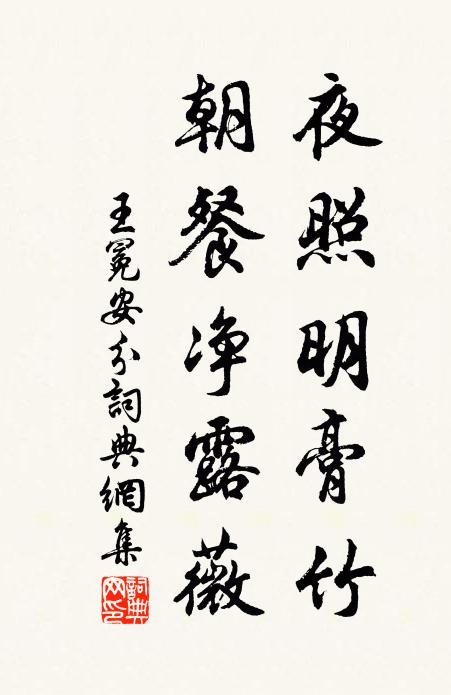 夜照明膏竹
朝餐净露薇
王冕安分詞典網集
詞典网印